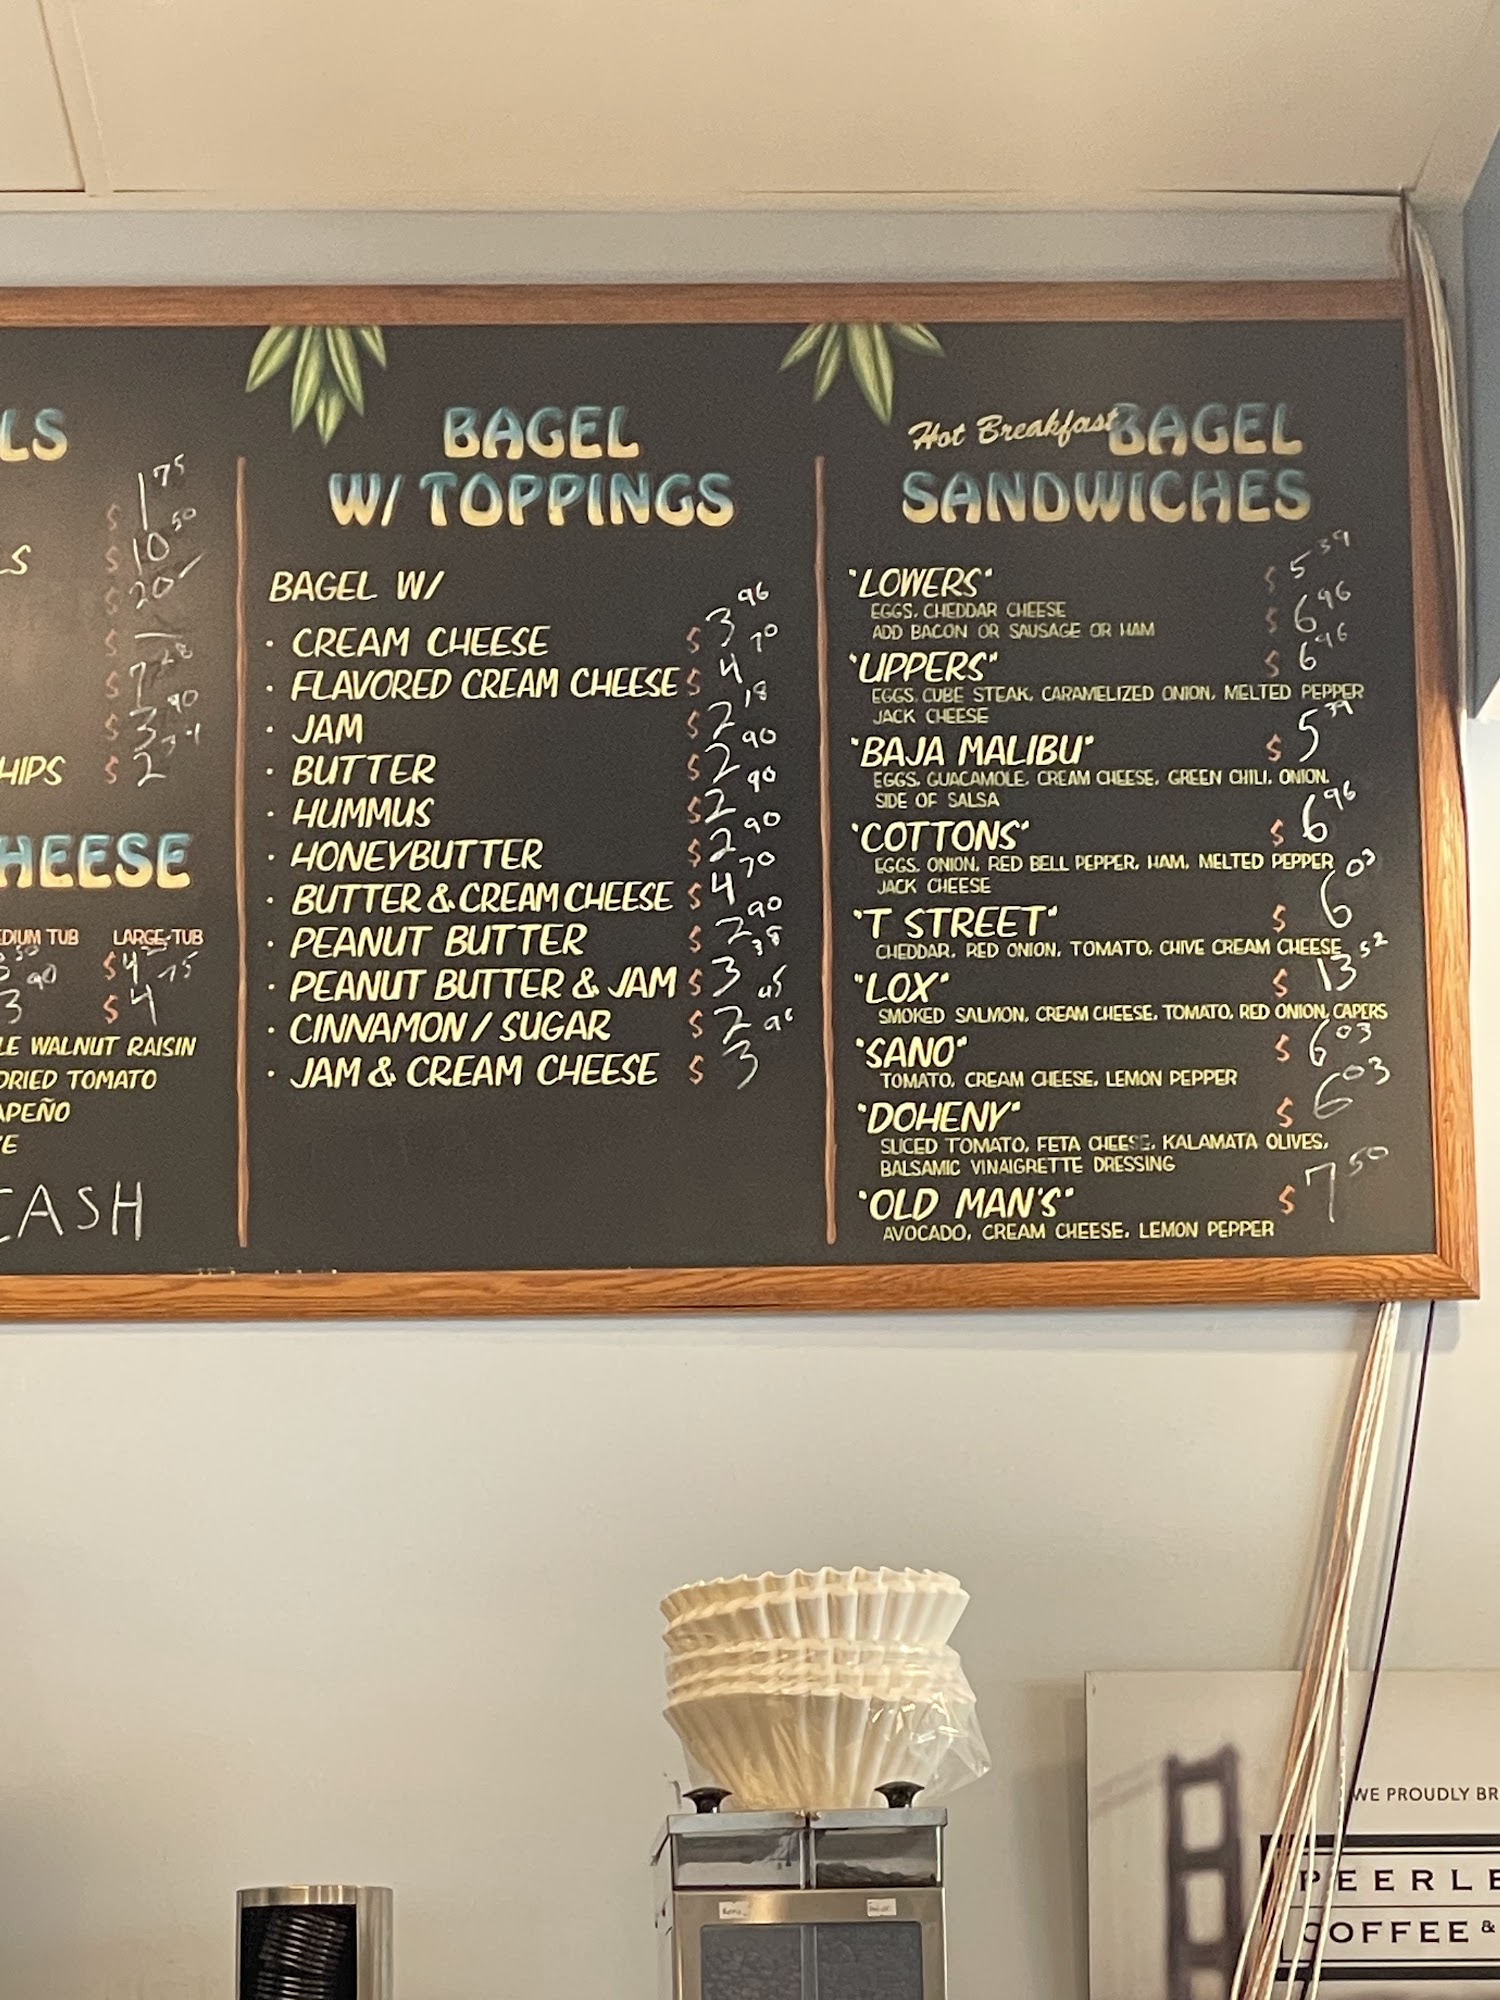 LS
$ 1 75
LS $ 10 50
$ 20
$
$ 7 28
$ 3 90
HIPS $ 2
HEESE
EDIUM TUB LARGE TUB
90 $ 4 75
3 $ 4
LE WALNUT RAISIN
DRIED TOMATO
APEÑO
E
CASH
BAGEL
W/ TOPPINGS
BAGEL W/
· CREAM CHEESE $ 3 96
· FLAVORED CREAM CHEESE $ 4 70
· JAM $ 2 18
· BUTTER $ 2 90
· HUMMUS $ 2 90
· HONEYBUTTER $ 2 90
· BUTTER & CREAM CHEESE $ 4 70
· PEANUT BUTTER $ 2 90
· PEANUT BUTTER & JAM $ 3 38
· CINNAMON / SUGAR $ 2 45
· JAM & CREAM CHEESE $ 3 96
Hot Breakfast BAGEL
SANDWICHES
"LOWERS" $ 5 39
EGGS, CHEDDAR CHEESE $ 6 96
ADD BACON OR SAUSAGE OR HAM
"UPPERS" $ 6 96
EGGS, CUBE STEAK, CARAMELIZED ONION, MELTED PEPPER
JACK CHEESE
"BAJA MALIBU" $ 5 39
EGGS, GUACAMOLE, CREAM CHEESE, GREEN CHILI, ONION,
SIDE OF SALSA
"COTTONS" $ 6 96
EGGS, ONION, RED BELL PEPPER, HAM, MELTED PEPPER
JACK CHEESE
"T STREET" $ 6 03
CHEDDAR, RED ONION, TOMATO, CHIVE CREAM CHEESE
"LOX" $ 13 52
SMOKED SALMON, CREAM CHEESE, TOMATO, RED ONION, CAPERS
"SANO" $ 6 03
TOMATO, CREAM CHEESE, LEMON PEPPER
"DOHENY" $ 6 03
SLICED TOMATO, FETA CHEESE, KALAMATA OLIVES,
BALSAMIC VINAIGRETTE DRESSING
"OLD MAN'S" $ 7 50
AVOCADO, CREAM CHEESE, LEMON PEPPER
WE PROUDLY BR
PEERLE
COFFEE &